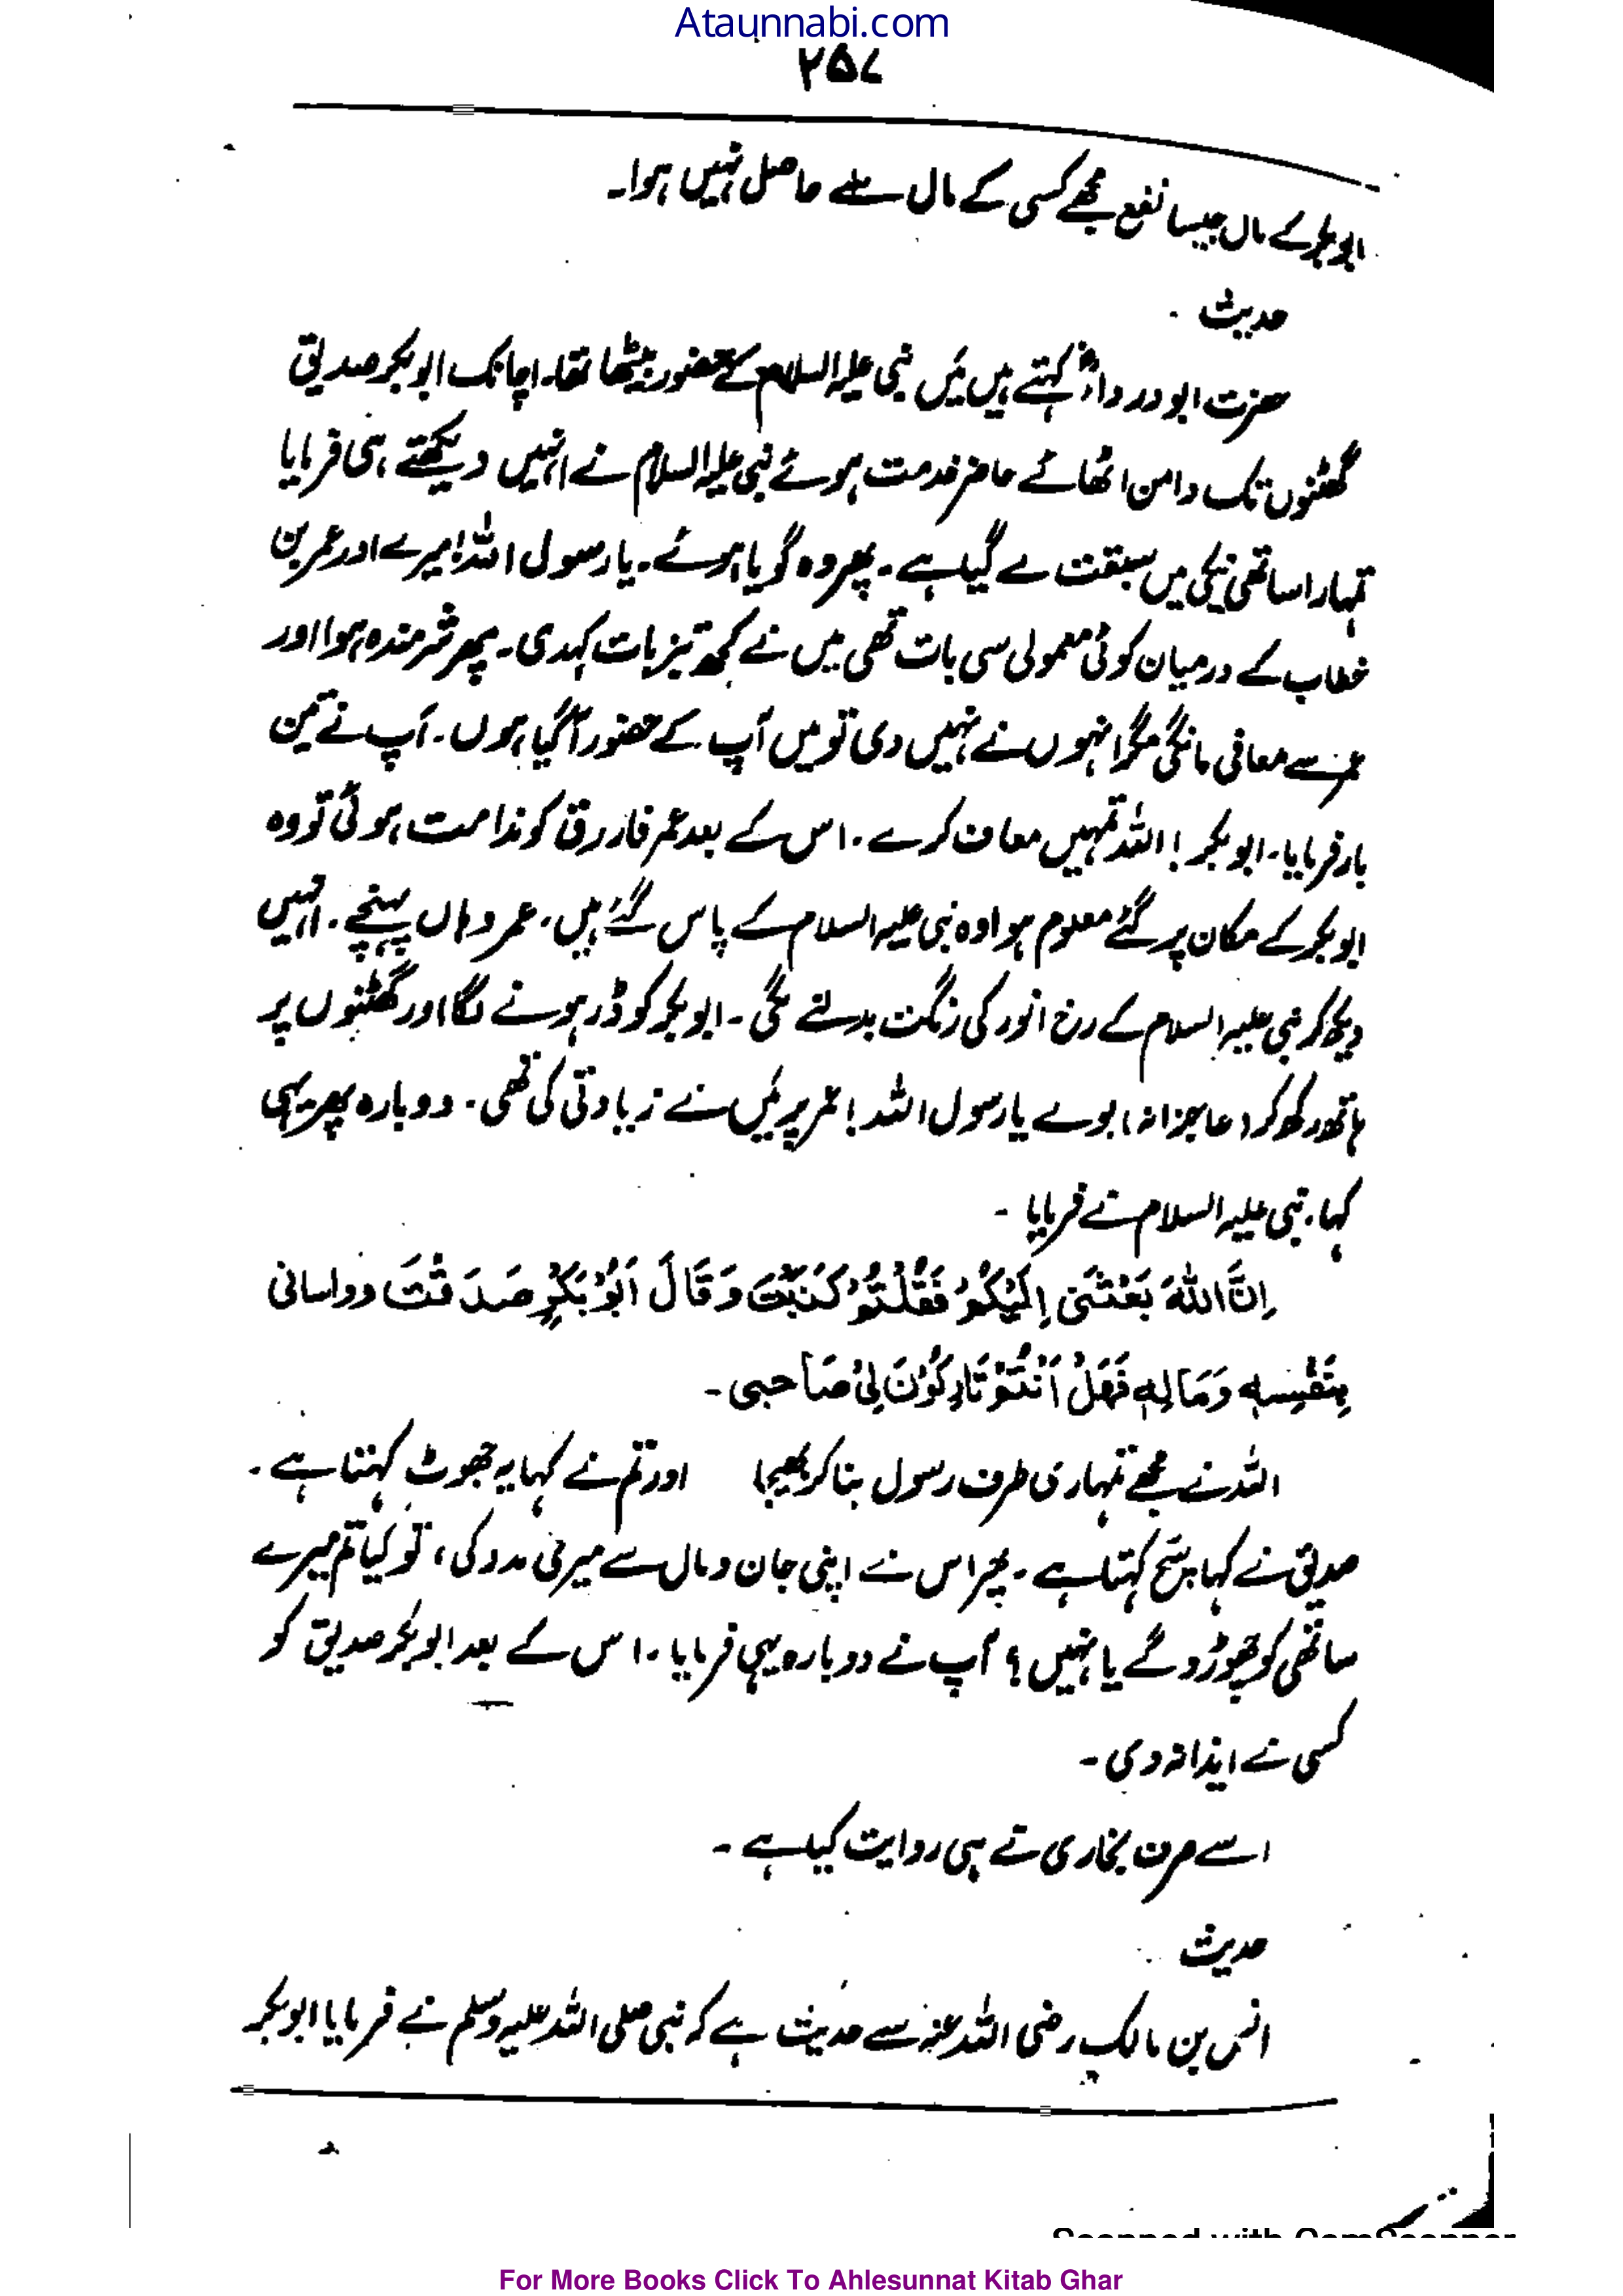 Ataunnabi.com
۲۵۷
ابوبکر کے مال جیسا نفع مجھے کسی کے مال سے حاصل نہیں ہوا۔
حدیث ۔
حضرت ابودرداءؓ کہتے ہیں میں نبی علیہ السلام کے حضور بیٹھا تھا۔ اچانک ابوبکر صدیق
گھٹنوں تک دامن اٹھائے حاضر خدمت ہوئے نبی علیہ السلام نے انہیں دیکھتے ہی فرمایا
تمہارا ساتھی نیکی میں سبقت لے گیا ہے۔ پھر وہ گویا ہوئے۔ یا رسول اللہ! میرے اور عمر بن
خطاب کے درمیان کوئی معمولی سی بات تھی میں نے کچھ تیز بات کہدی۔ پھر شرمندہ ہوا اور
عمر سے معافی مانگی مگر انہوں نے نہیں دی تو میں آپ کے حضور آ گیا ہوں۔ آپ نے تین
بار فرمایا۔ ابوبکر! اللہ تمہیں معاف کرے۔ اس کے بعد عمر فاروق کو ندامت ہوئی تو وہ
ابوبکر کے مکان پر گئے معلوم ہوا وہ نبی علیہ السلام کے پاس گئے ہیں۔ عمر وہاں پہنچے۔ انہیں
دیکھ کر نبی علیہ السلام کے رخ انور کی رنگت بدلنے لگی۔ ابوبکر کو ڈر ہونے لگا اور گھٹنوں پر
ہاتھ رکھ کر (عاجزانہ) بولے یا رسول اللہ! عمر پر میں نے زیادتی کی تھی۔ دوبارہ پھر یہی
کہا۔ نبی علیہ السلام نے فرمایا ۔
اِنَّ اللّٰهَ بَعَثَنِیْ اِلَیْکُمْ فَقُلْتُمْ کَذَبْتَ وَ قَالَ اَبُوْ بَکْرٍ صَدَقْتَ وواسانی
بِنَفْسِهٖ وَمَالِهٖ فَهَلْ اَنْتُمْ تَارِکُوْنَ لِیْ صَاحبی ۔
اللہ نے مجھے تمہاری طرف رسول بنا کر بھیجا اور تم نے کہا یہ جھوٹ کہتا ہے ۔
صدیق نے کہا سچ کہتا ہے ۔ پھر اس نے اپنی جان و مال سے میری مدد کی، تو کیا تم میرے
ساتھی کو چھوڑو گے یا نہیں؟ آپ نے دوبارہ یہی فرمایا۔ اس کے بعد ابوبکر صدیق کو
کسی نے ایذا نہ دی ۔
اسے صرف بخاری نے ہی روایت کیا ہے ۔
حدیث
انس بن مالک رضی اللہ عنہ سے حدیث ہے کہ نبی صلی اللہ علیہ وسلم نے فرمایا ابوبکر
Scanned with CamScanner
For More Books Click To Ahlesunnat Kitab Ghar